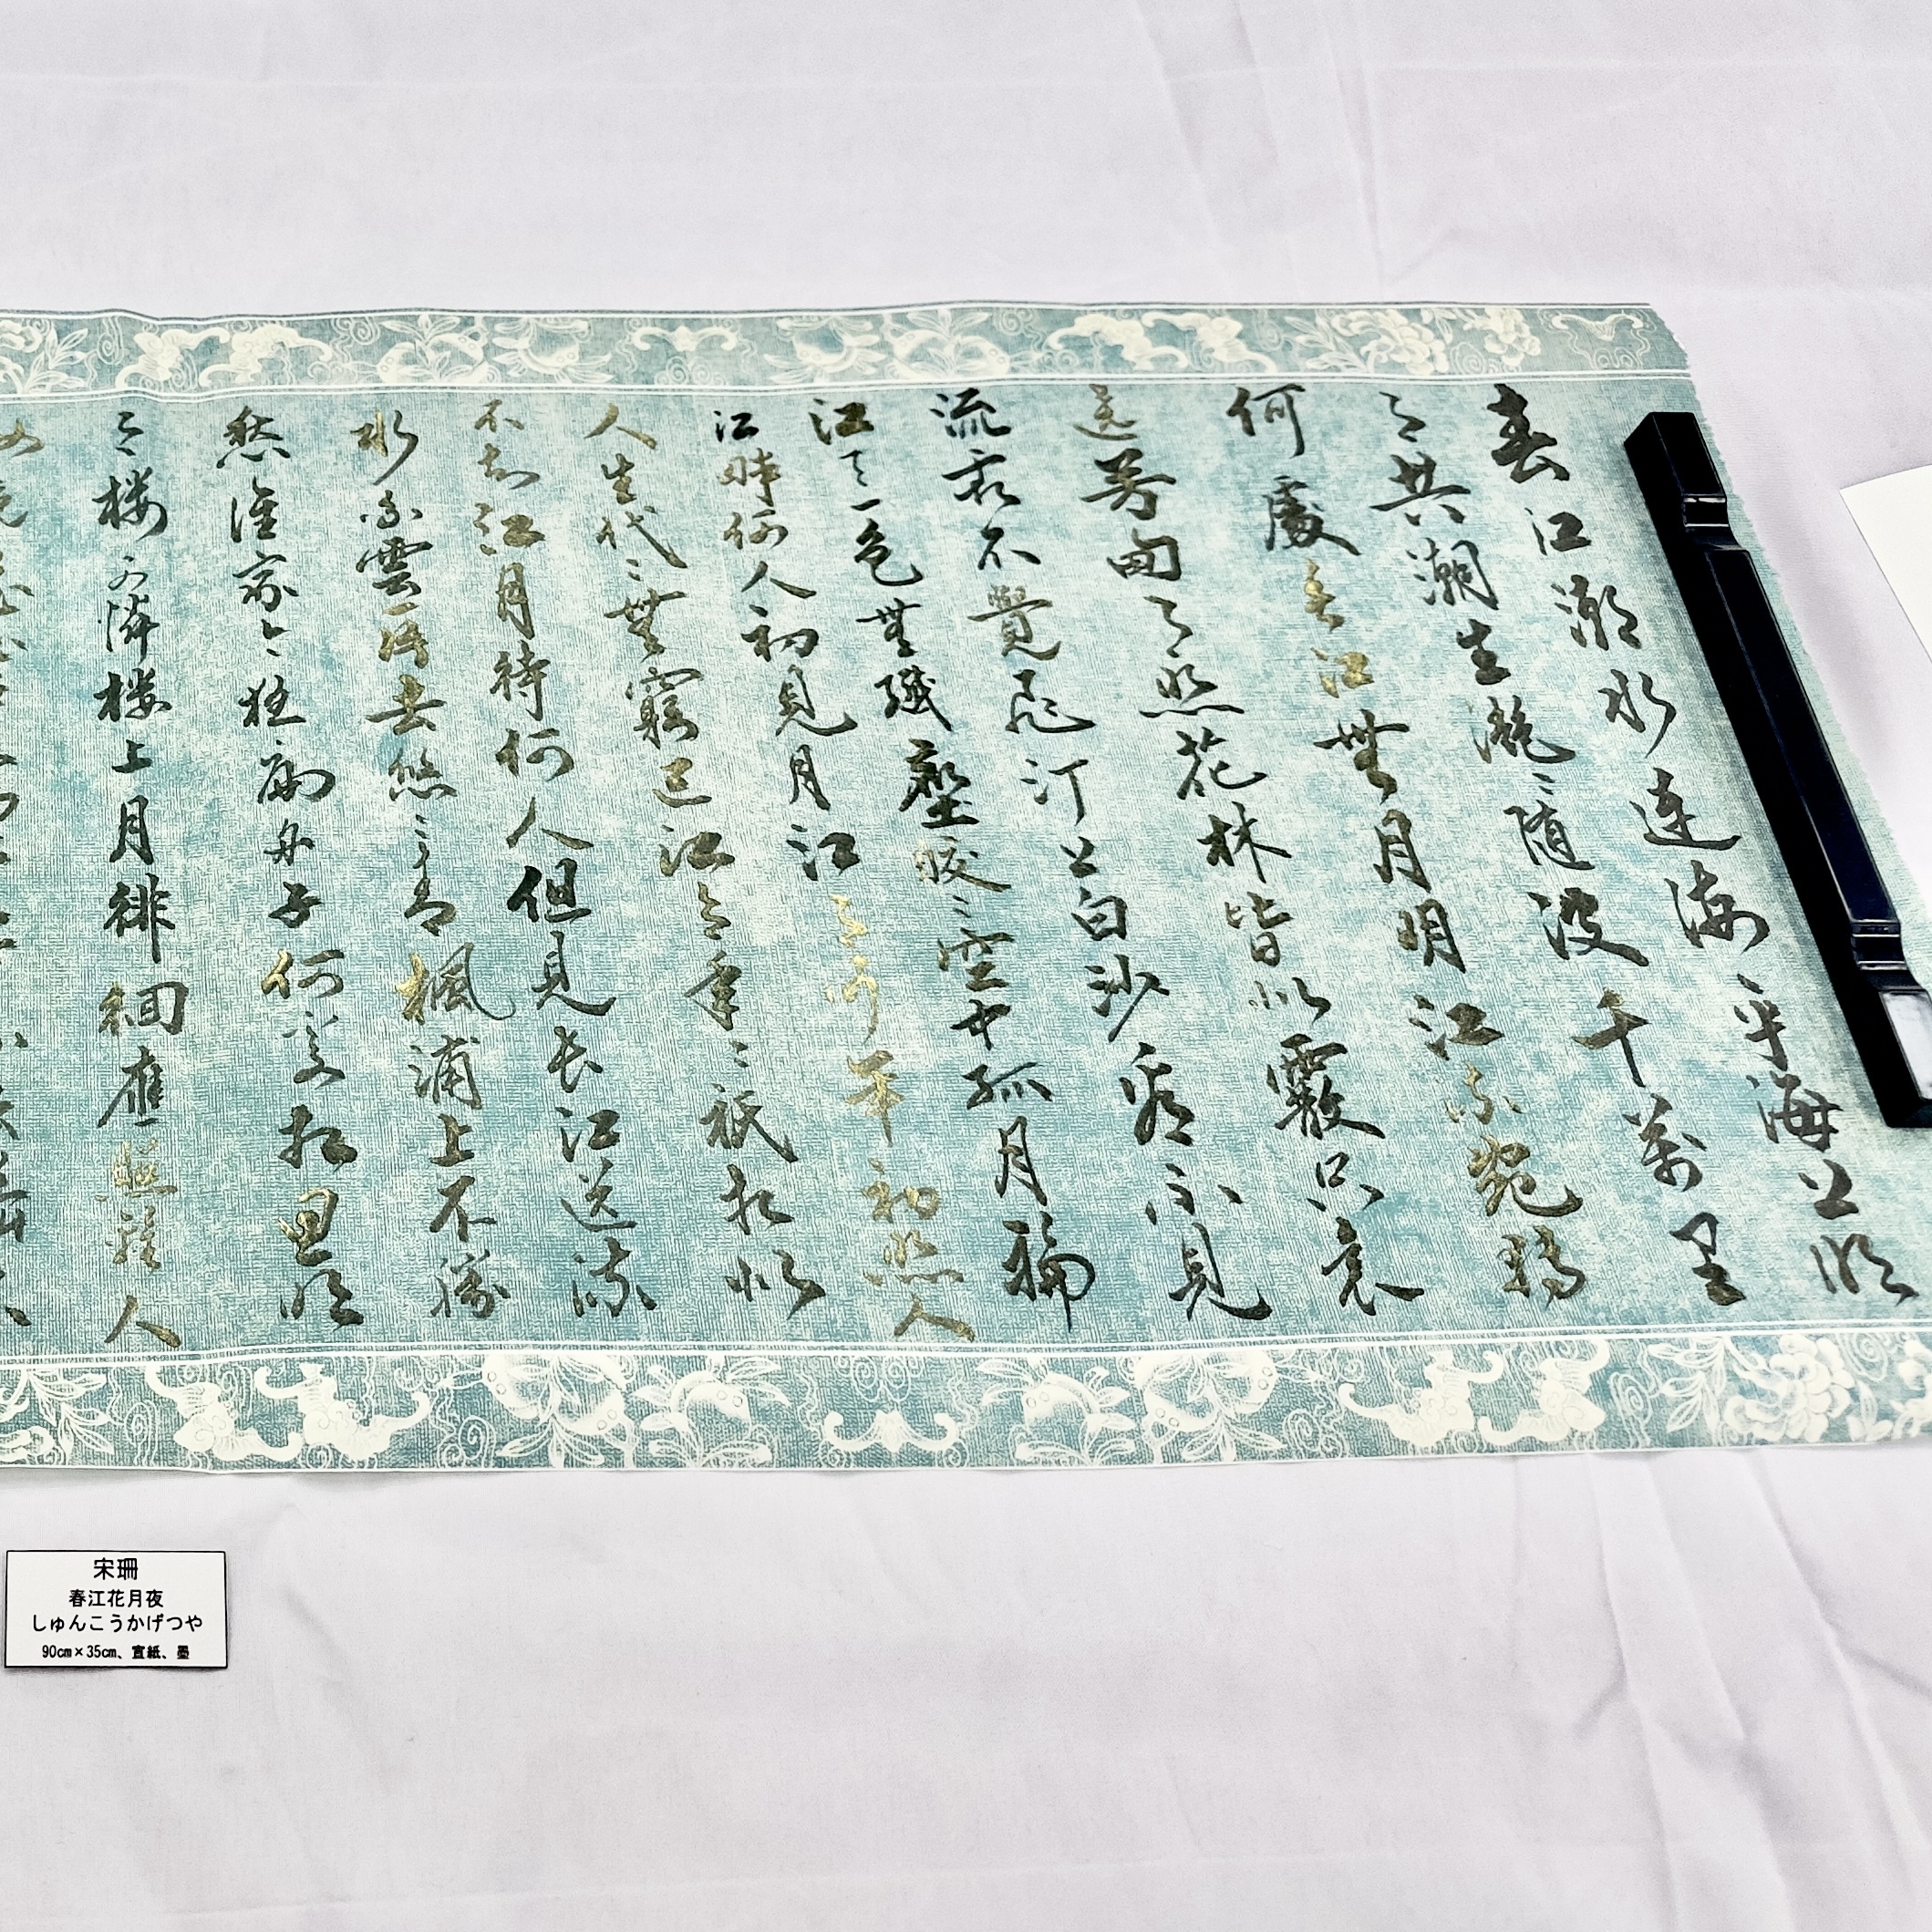 春江潮水連海平海上明
月共潮生灧〻随波千萬里
何處春江無月明江流宛轉
遶芳甸月照花林皆似霰空裏
流霜不覺飛汀上白沙看不見
江天一色無纖塵皎〻空中孤月輪
江畔何人初見月江月何年初照人
人生代〻無窮已江月年〻祇相似
不知江月待何人但見長江送流
水白雲一片去悠〻青楓浦上不勝
愁誰家今夜扁舟子何處相思明
月楼可憐楼上月徘徊應照離人
宋珊
春江花月夜
しゅんこうかげつや
90cm×35cm、宣紙、墨